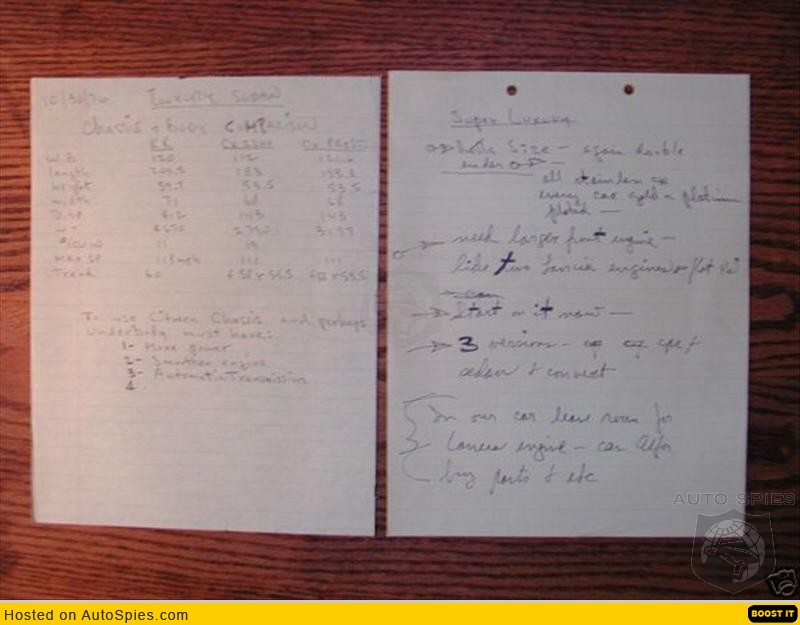 10/30/74 LUXURY SEDAN
Chassis & Body COMPARISON
RR
W B 120 112
length 203.5 183
height 59.7 53.5 53.5
width 71 68 68
Disp 412 143 143
WT 4670
11
MAX SP 118 mph
Tread 60
To use Citroen Chassis and perhaps
Underbody must have:
1- More power
2- Smoother engine
3- Automatic Transmission
4
Super Luxury
Size - again double
ender
all stainless
every car gold or platinum
plated -
need larger front engine -
like two Lancia engines or flat
Start on it now -
3 versions - cpe,
sedan & convert
In our car leave room for
Lancia engine - can
buy parts & etc
AUTO SPIES
Hosted on AutoSpies.com
BOOST IT